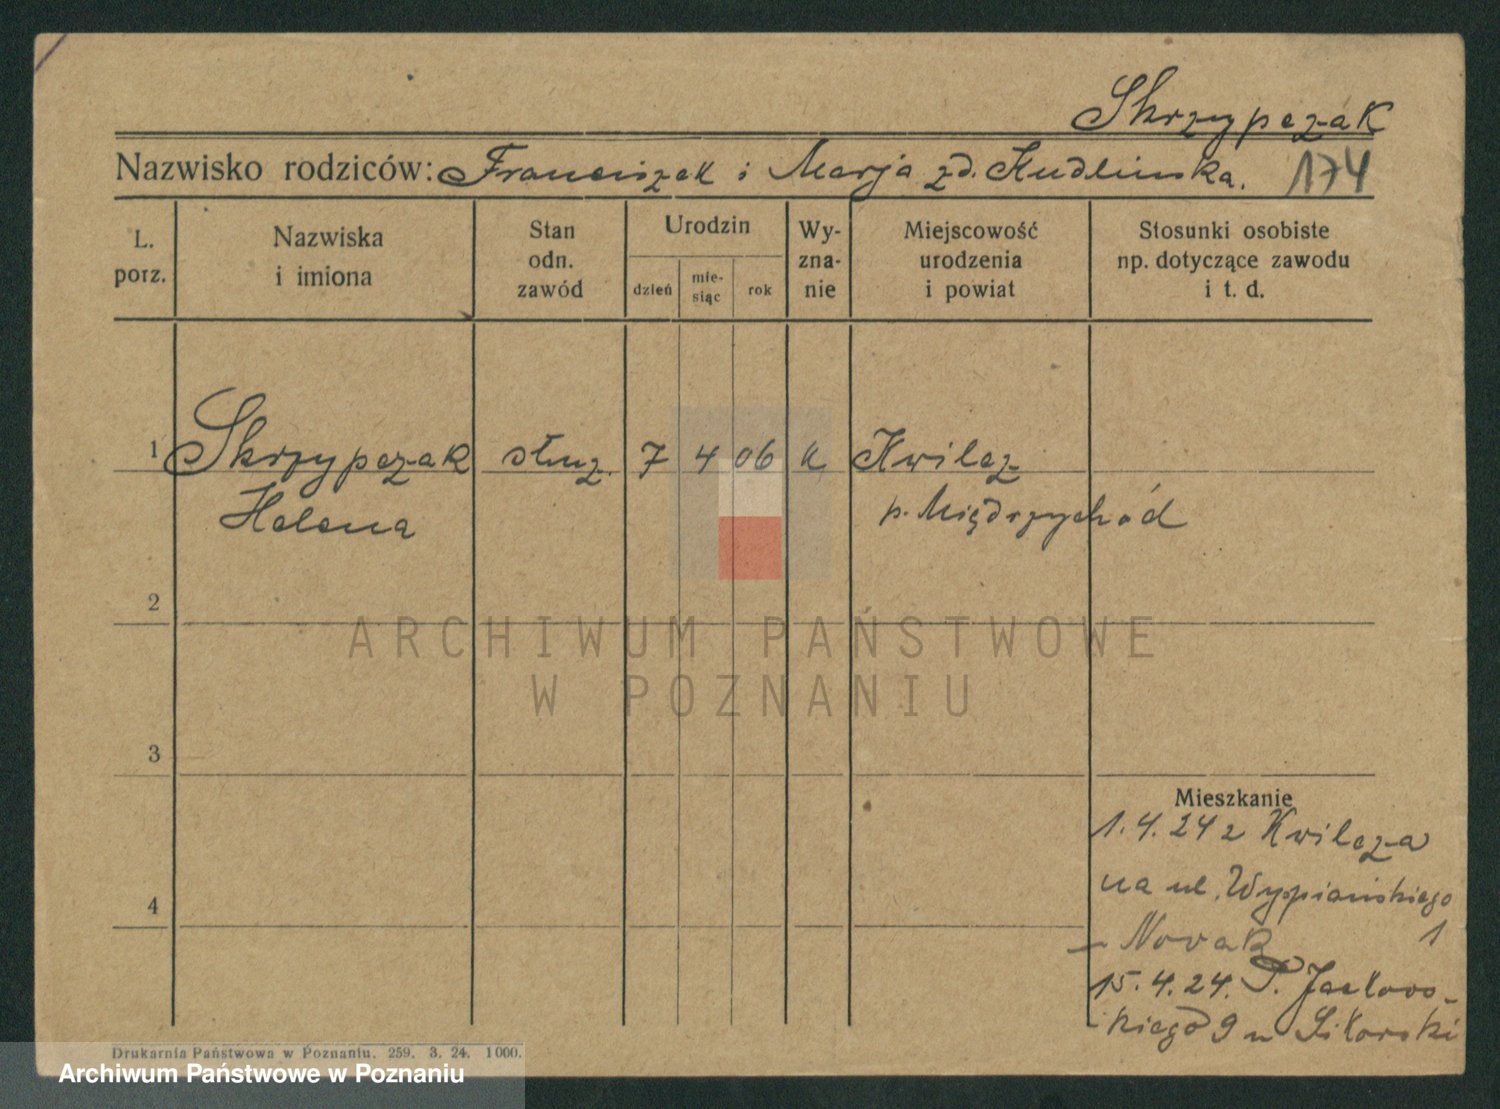 Skrzypczak
Nazwisko rodziców: Franciszek i Marja zd. Kudlinska. 174
L. porz.
Nazwiska i imiona
Stan odn. zawód
Urodzin
dzień
mie-siąc
rok
Wy-zna-nie
Miejscowość urodzenia i powiat
Stosunki osobiste np. dotyczące zawodu i t. d.
1 Skrzypczak służ. 7 4 06 k Kwilcz
Helena p. Międzychód
2
3
4
Mieszkanie
1.4.24 z Kwilcza
na ul. Wyspiańskiego
1
Novak
15.4.24. P. Jackowo-
kiego 9 u Sikorski
Drukarnia Państwowa w Poznaniu. 259. 3. 24. 1000.
ARCHIWUM PAŃSTWOWE
W POZNANIU
Archiwum Państwowe w Poznaniu